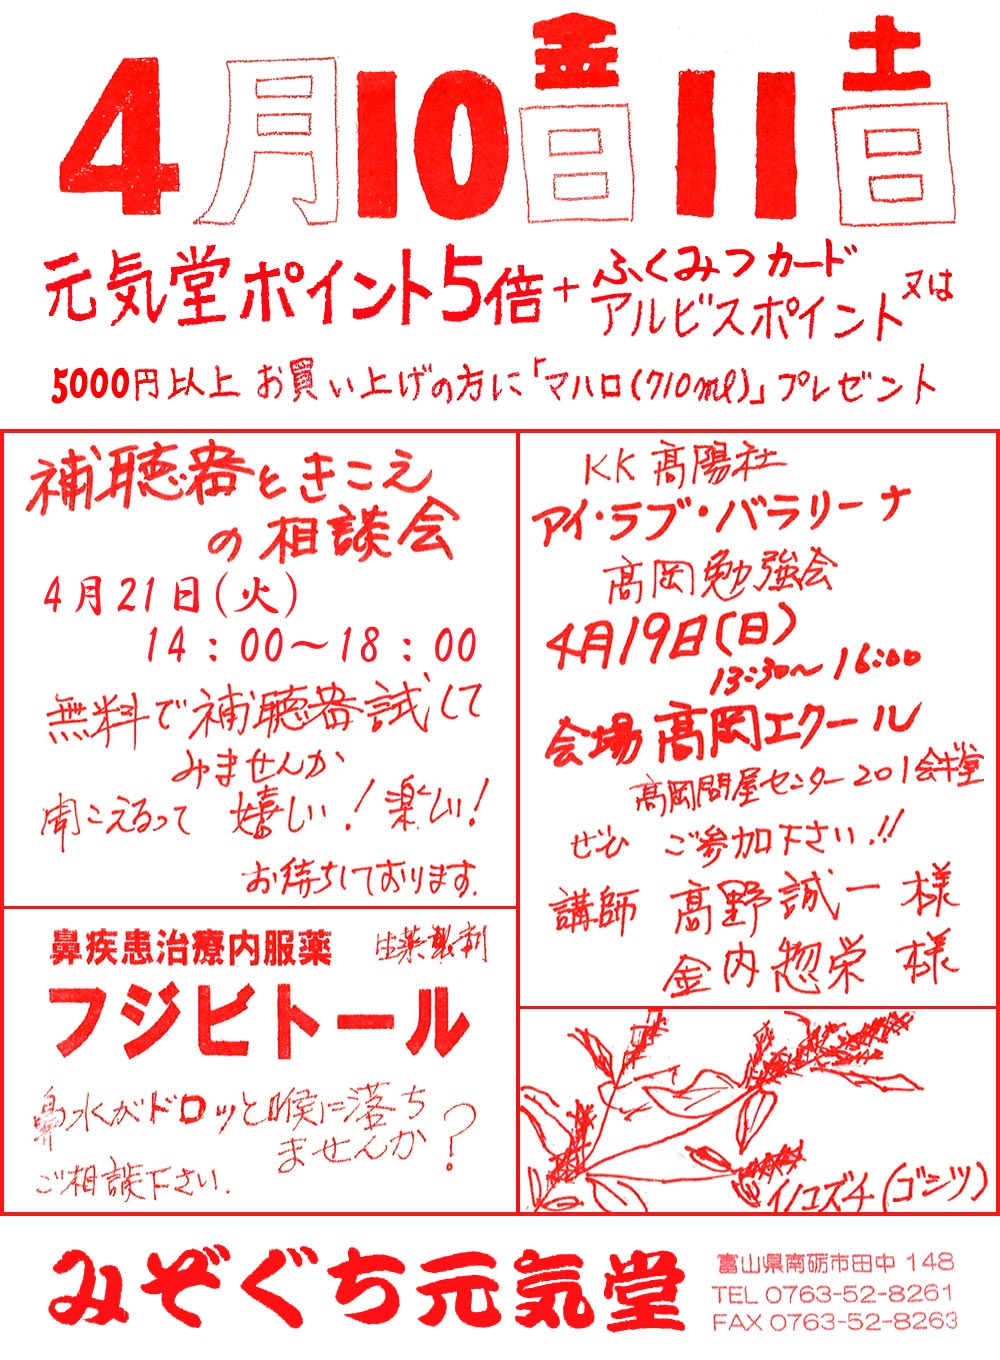 4月10日金 11日土
元気堂ポイント5倍+ふくみつカード又は
アルビスポイント
5000円以上お買い上げの方に「マハロ(710ml)」プレゼント
補聴器ときこえ
の相談会
4月21日(火)
14:00～18:00
無料で補聴器試して
みませんか
聞こえるって 嬉しい!楽しい!
お待ちしております.
鼻疾患治療内服薬 生薬製剤
フジビトール
鼻水がドロッと喉に落ち
ませんか?
ご相談下さい.
KK髙陽社
アイ・ラブ・バラリーナ
髙岡勉強会
4月19日(日)
13:30～16:00
会場髙岡エクール
髙岡問屋センター201会議室
ぜひ ご参加下さい!!
講師 髙野誠一様
金内惣栄様
イノコズチ(ゴシツ)
みぞぐち元気堂
富山県南砺市田中148
TEL 0763-52-8261
FAX 0763-52-8263